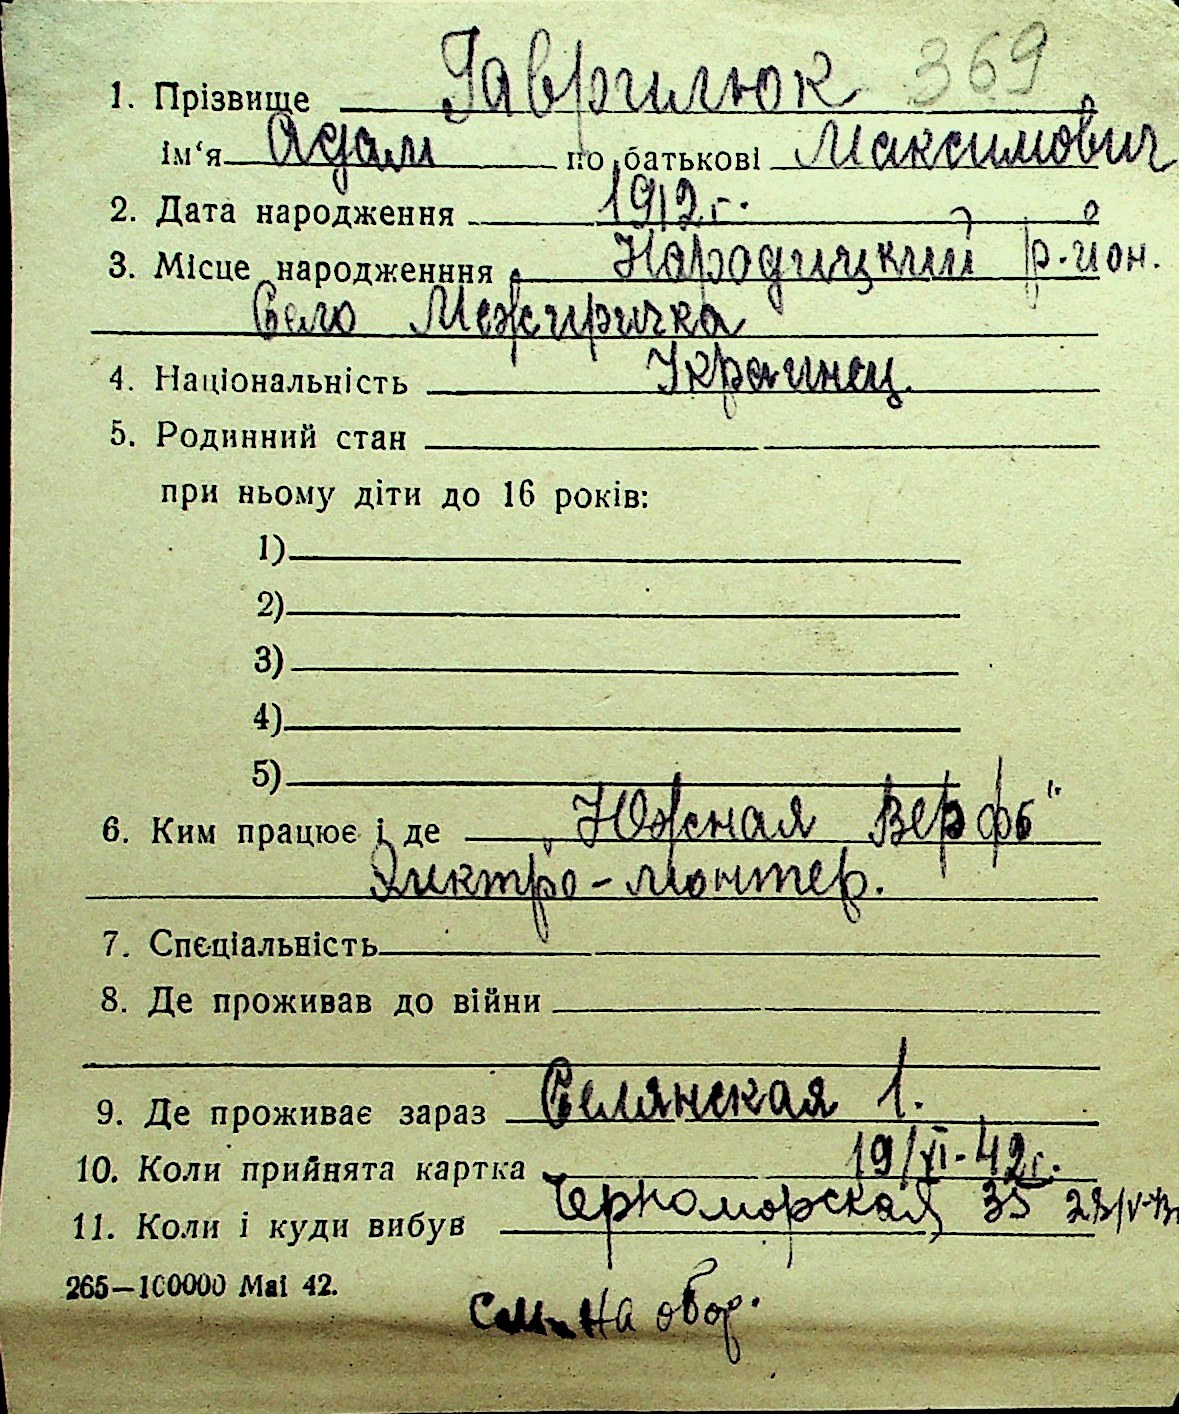 369
1. Прізвище Гаврилюк
ім'я Адам по батькові Максимович
2. Дата народження 1912 г.
3. Місце народженння Народицкий р-йон.
Село Межиричка
4. Національність Украинец.
5. Родинний стан
при ньому діти до 16 років:
1)
2)
3)
4)
5)
6. Ким працює і де „Южная Верфь"
Электро-монтер.
7. Спєціальність
8. Де проживав до війни
9. Де проживає зараз Селянская 1.
10. Коли прийнята картка 19/VI-42г.
11. Коли і куди вибув Черноморская 35
265—100000 Mai 42.
см. на обор.